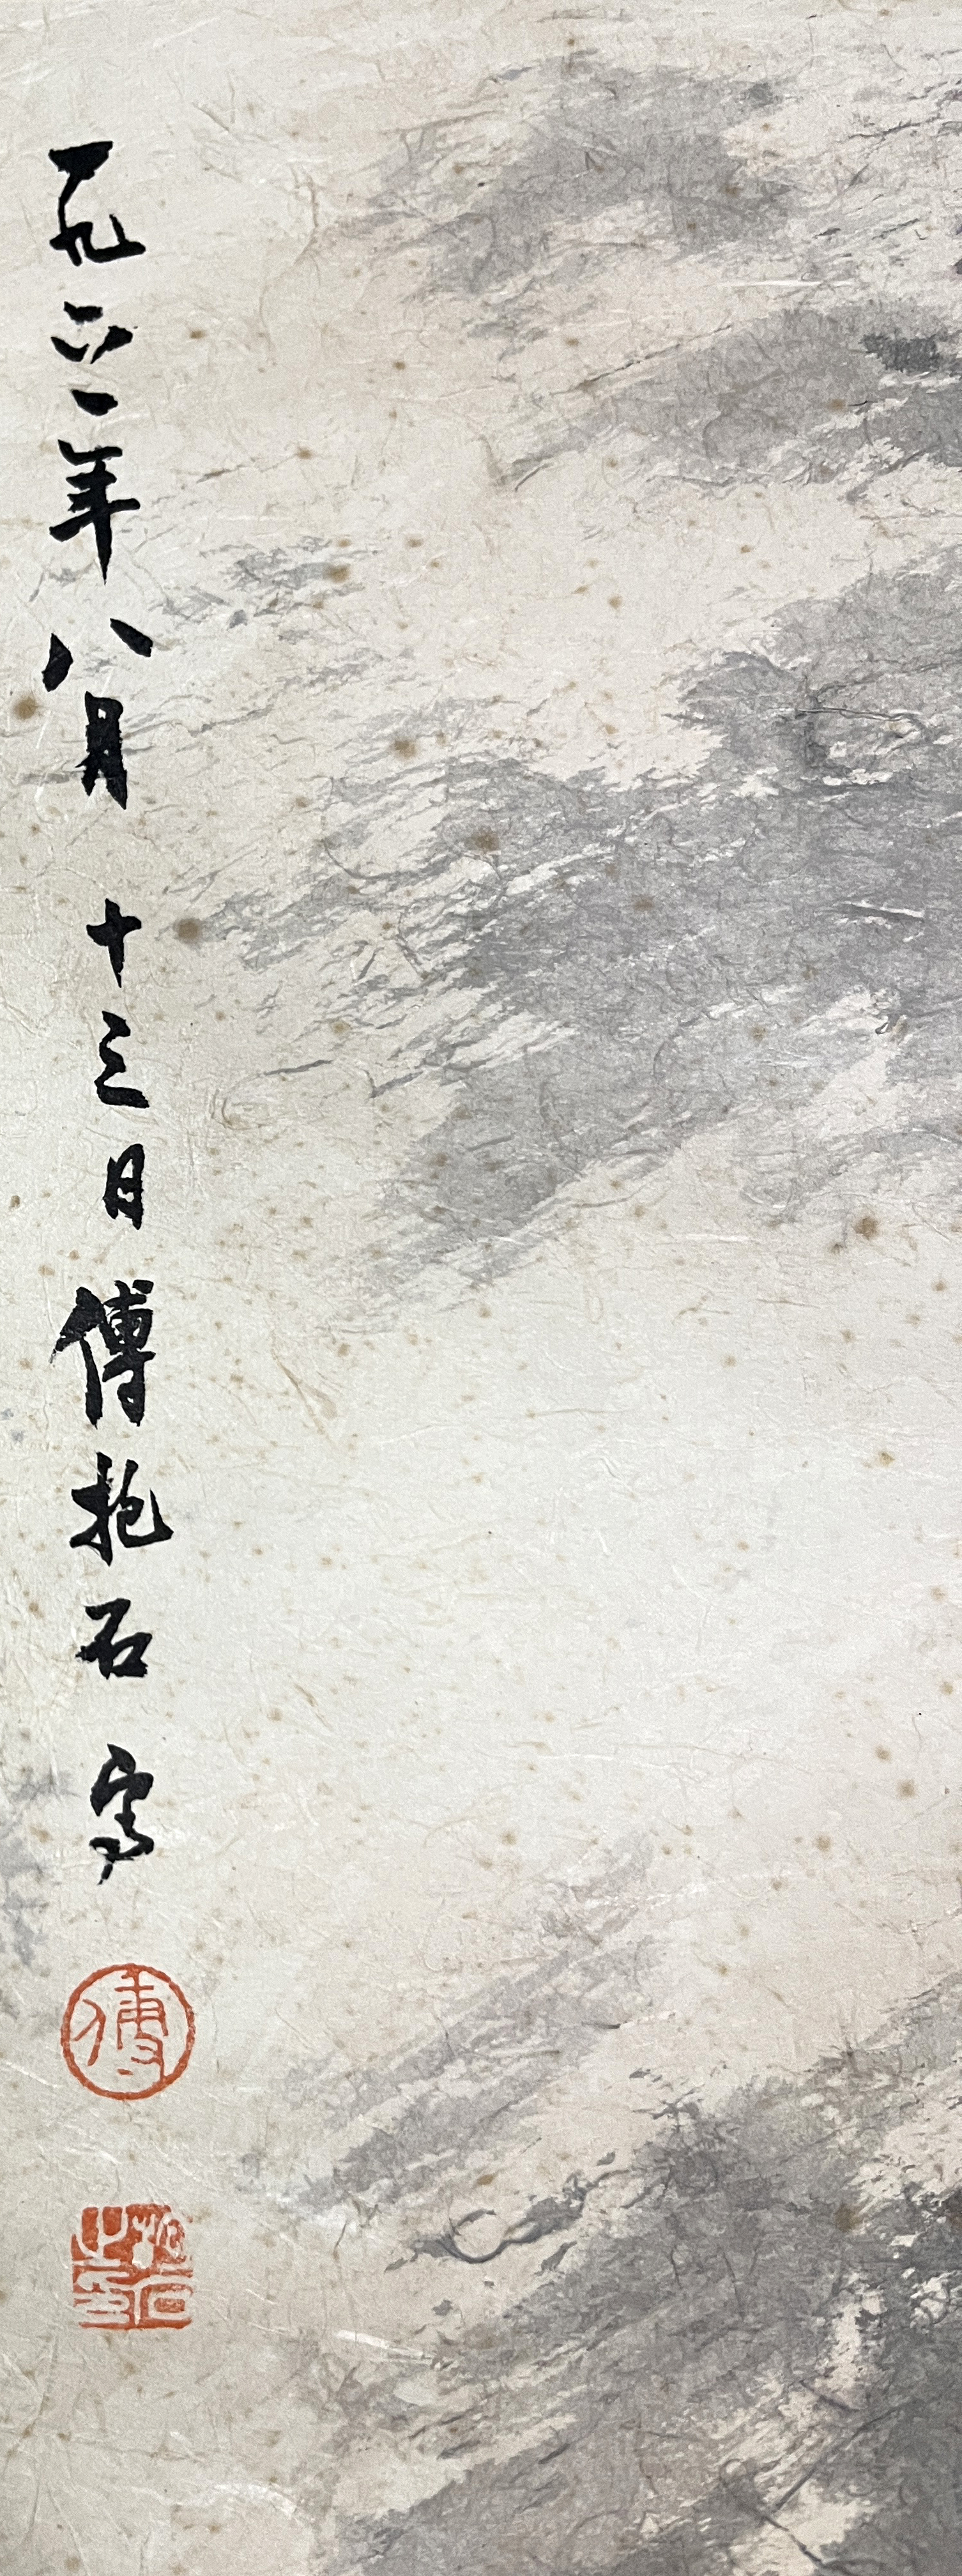 一九六一年八月十三日傅抱石寫
傅
抱石之印